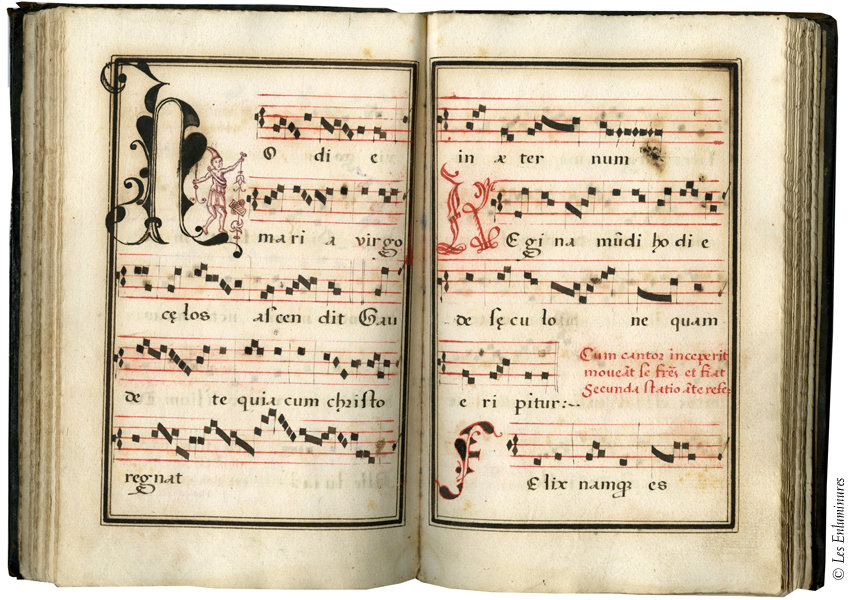 HO di e
mari a virgo
cęlos ascen dit Gau
de te quia cum christo
regnat
in æ ter num
REgi na mūdi ho di e
de sęcu lo ne quam
Cum cantor inceperit
moveāt se frēs et fiat
Secunda statio āte refer
e ri pitur:~
FElix namqꝫ es
© Les Enluminures